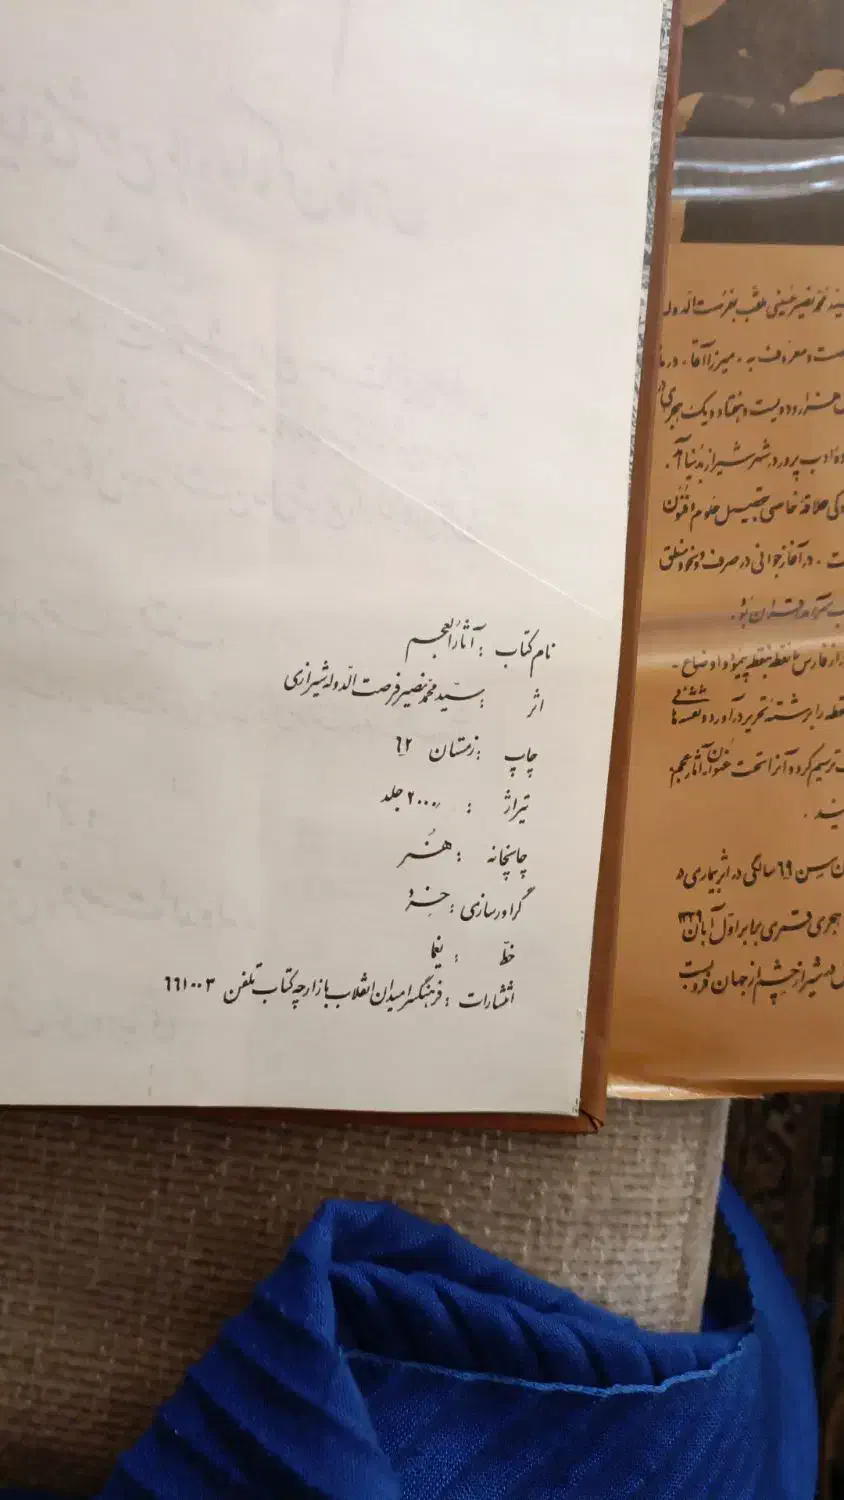 نام کتاب : آثارالعجم
اثر : سیّد محمّد نصیر فرصت الدّوله شیرازی
چاپ : زمستان ٦٢
تیراژ : ٢٠٠٠ جلد
چاپخانه : هنر
گراورسازی : خرد
خطّ : یغما
انتشارات : فرهنگسرا میدان انقلاب بازارچه کتاب تلفن ٦٦١٠٠٣
محمّد نصیر حسینی ملقب بفرصت الدوله
و معروف به « میرزا آقا »
هزار و دویست و هفتاد و یک هجری
ادب پرور در شهر شیراز بدنیا آ
علاقۀ خاصی بتحصیل علوم و فنون
در آغاز جوانی در صرف و نحو و منطق
سرآمد اقران بود .
از فارس را نقطه بنقطه پیمود و اوضاع
را برشتۀ تحریر درآورد و نقشه‌ها
ترسیم کرد و آنرا تحت عنوان آثار عجم
سن ٦٩ سالگی در اثر بیماری
هجری قمری برابر اوّل آبان
شیراز چشم از جهان فرو بست